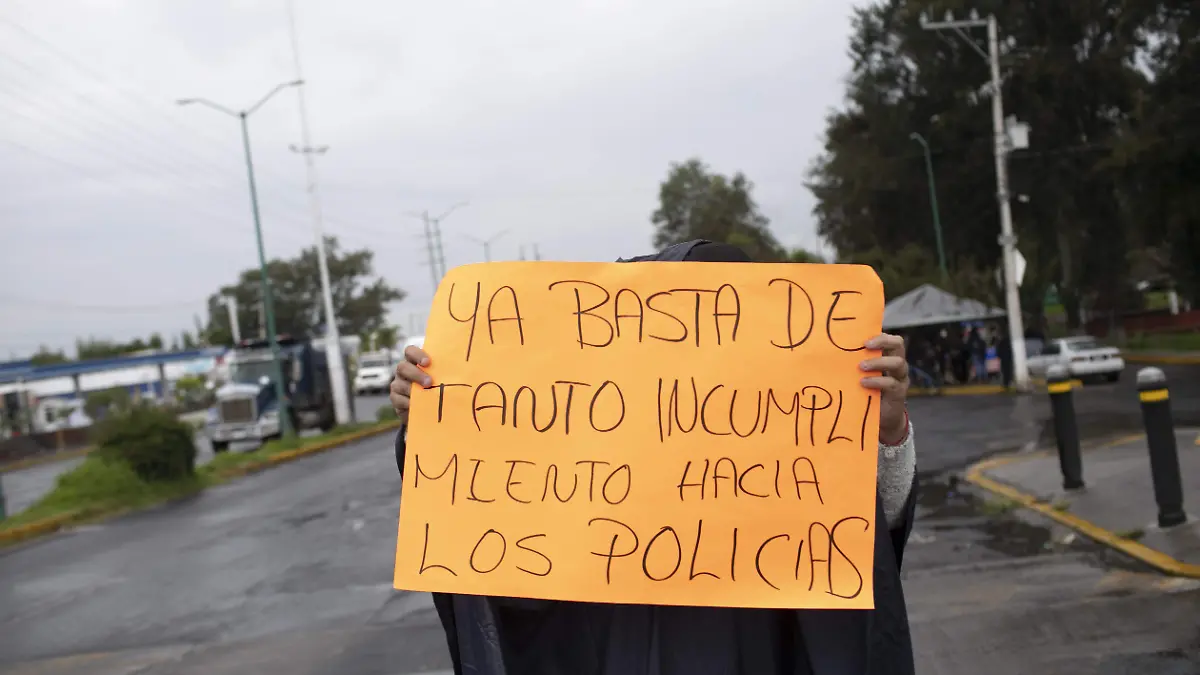 YA BASTA DE
TANTO INCUMPLI
MIENTO HACIA
LOS POLICIAS